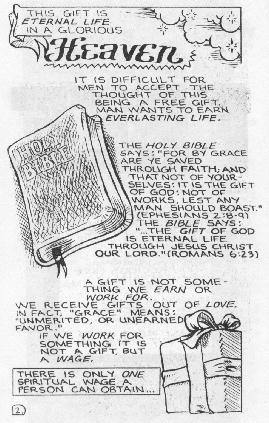 THIS GIFT IS
ETERNAL LIFE
IN A GLORIOUS
HEAVEN
IT IS DIFFICULT FOR
MEN TO ACCEPT THE
THOUGHT OF THIS
BEING A FREE GIFT.
MAN WANTS TO EARN
EVERLASTING LIFE.
HOLY
BIBLE
THE HOLY BIBLE
SAYS: "FOR BY GRACE
ARE YE SAVED
THROUGH FAITH; AND
THAT NOT OF YOUR-
SELVES: IT IS THE GIFT
OF GOD: NOT OF
WORKS, LEST ANY
MAN SHOULD BOAST."
(EPHESIANS 2:8-9)
THE BIBLE SAYS:
"...THE GIFT OF GOD
IS ETERNAL LIFE
THROUGH JESUS CHRIST
OUR LORD." (ROMANS 6:23)
A GIFT IS NOT SOME-
THING WE EARN OR
WORK FOR.
WE RECEIVE GIFTS OUT OF LOVE.
IN FACT, "GRACE" MEANS:
"UNMERITED, OR UNEARNED
FAVOR."
IF WE WORK FOR
SOMETHING IT IS
NOT A GIFT, BUT
A WAGE.
THERE IS ONLY ONE
SPIRITUAL WAGE A
PERSON CAN OBTAIN...
2